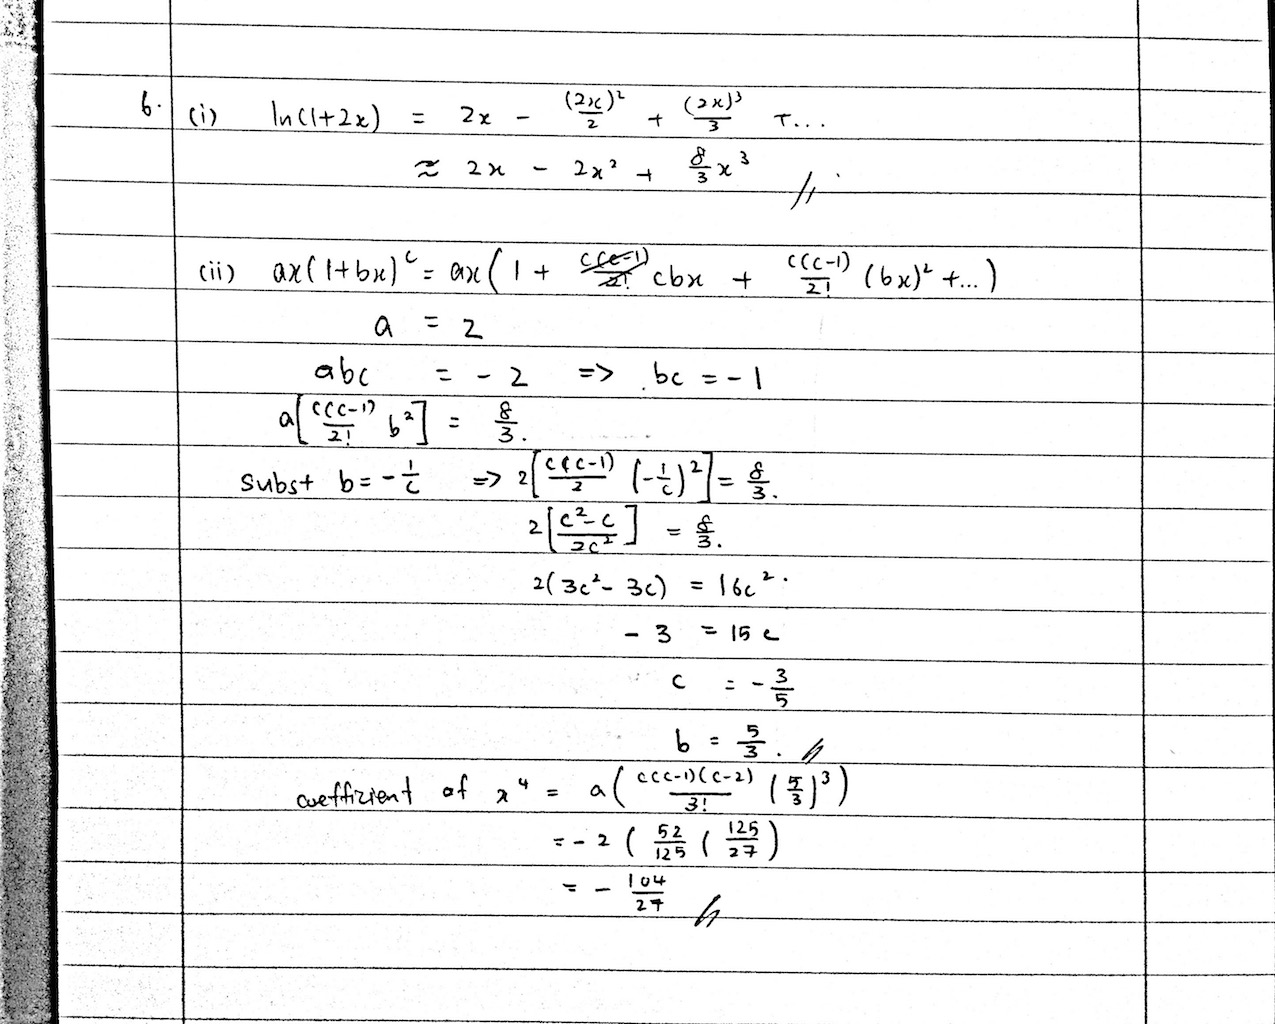 6. (i) ln(1+2x) = 2x - (2x)²/2 + (2x)³/3 + ...
≈ 2x - 2x² + 8/3 x³ //
(ii) ax(1+bx)^c = ax(1 + cbx + c(c-1)/2! (bx)² + ...)
a = 2
abc = -2 => bc = -1
a[c(c-1)/2! b²] = 8/3.
subst b = -1/c => 2[c(c-1)/2 (-1/c)²] = 8/3.
2[c²-c/2c²] = 8/3.
2(3c²-3c) = 16c².
-3 = 15c
c = -3/5
b = 5/3. //
coefficient of x⁴ = a(c(c-1)(c-2)/3! (5/3)³)
= -2(52/125 (125/27)
= -104/27 //